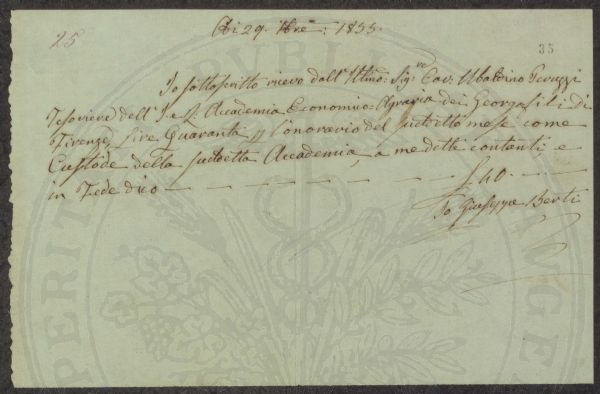 25
Adi 29. Xbre: 1855.
35
Io sottoscritto ricevo dall'Illmo: Sigre Cav. Ubaldino Peruzzi
Tesoriere dell'I. e R. Accademia Economico=Agraria dei Georgofili di
Firenze, Lire Quaranta p l'onorario del sudetto mese come
Custode della sudetta Accademia, a me dette contanti e
in Fede dico — — — — — — — — £ 40.
Io Giuseppe Berti
PERITI